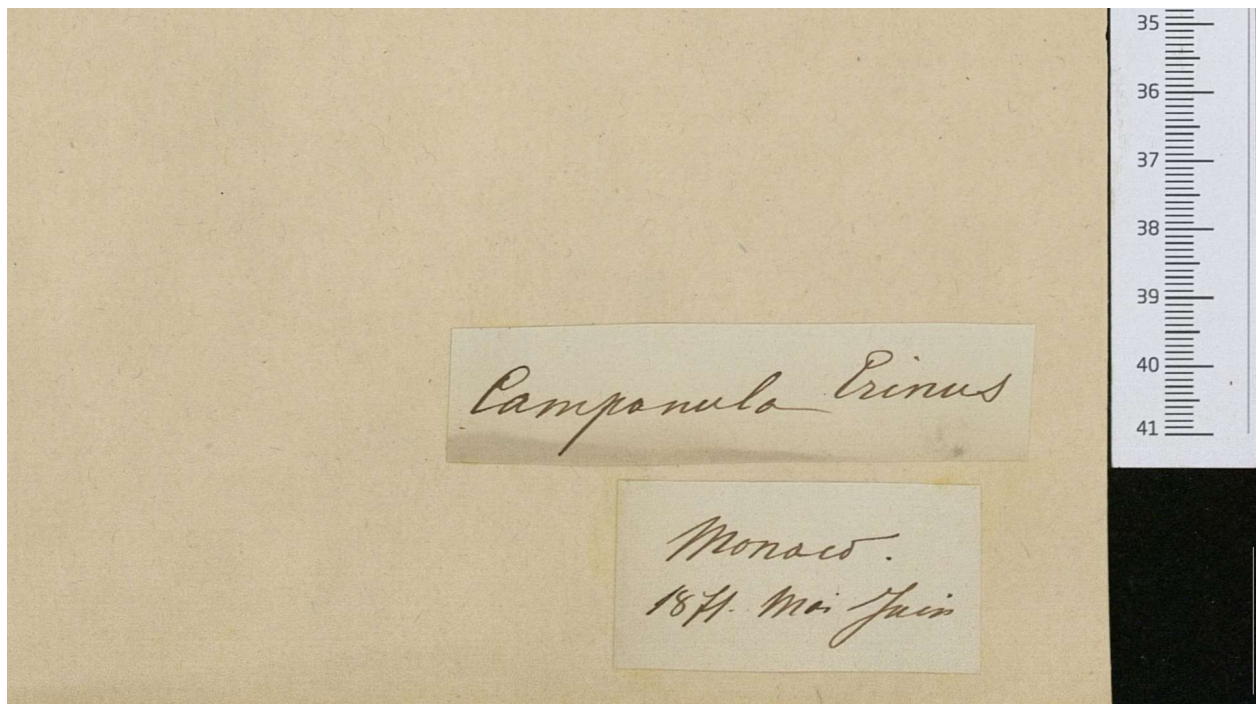 35
36
37
38
39
40
41
Campanula Erinus
Monaco.
1871. Mai Juin